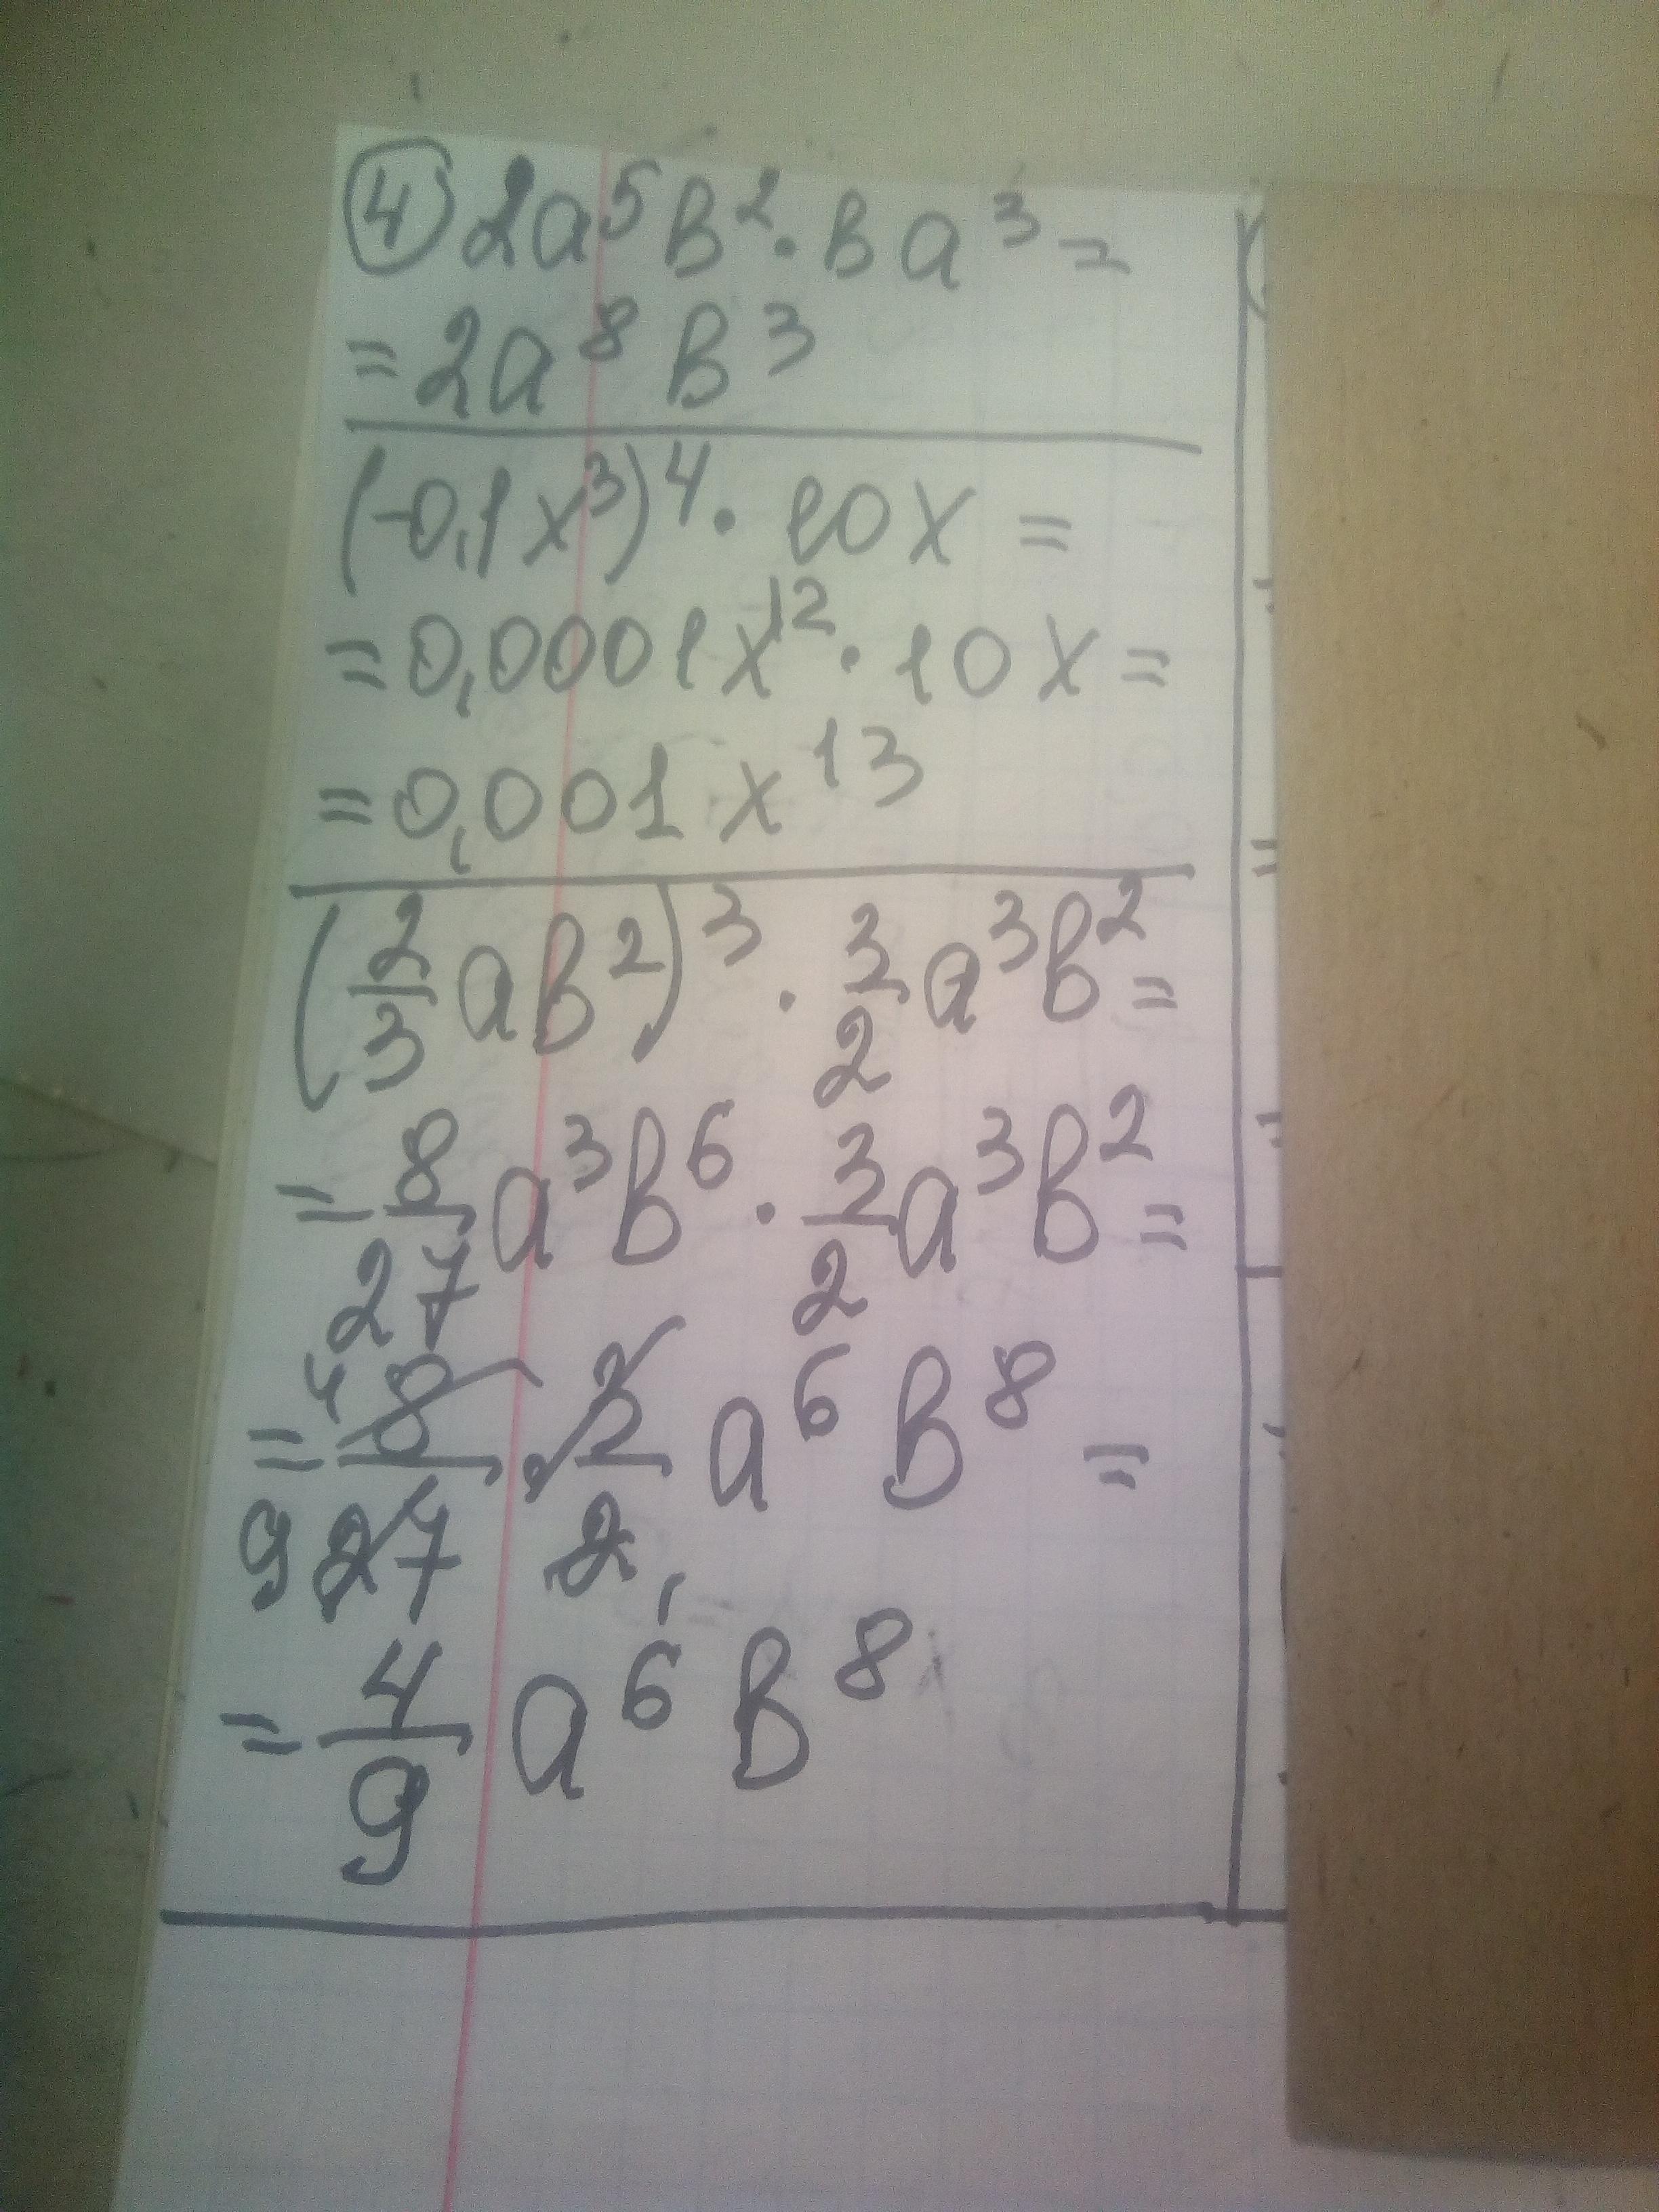 ④ 2a⁵в²·вa³=
=2a⁸в³
(-0,1x³)⁴·10x=
=0,0001x¹²·10x=
=0,001x¹³
(2/3 aв²)³·3/2 a³в²=
=8/27 a³в⁶·3/2 a³в²=
=⁴8/₉27·3/2₁ a⁶в⁸=
=4/9 a⁶в⁸